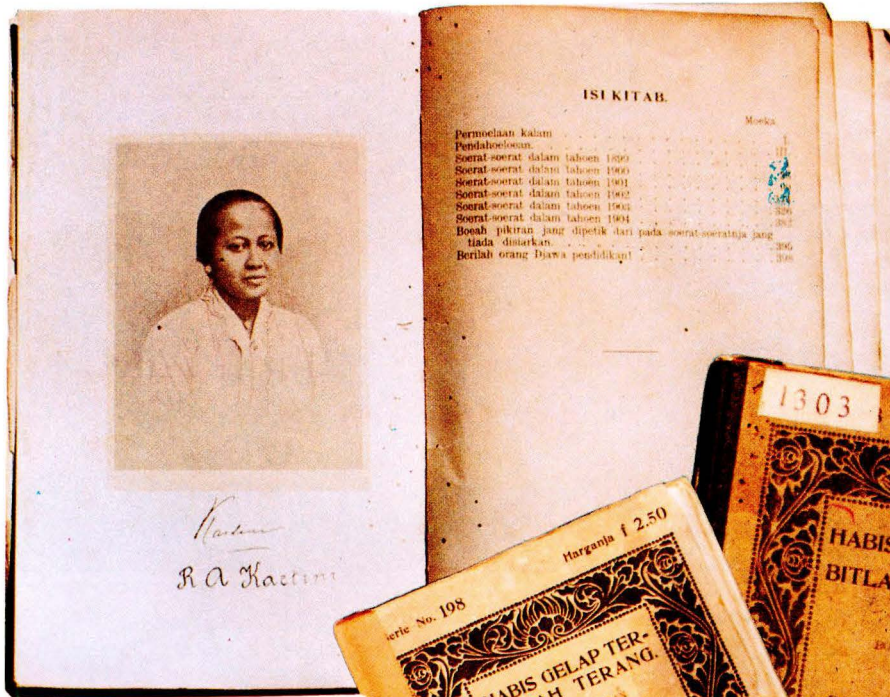 Kartini
R A Kartini
ISI KITAB.
Moeka
Permoelaan kalam
Pendahoeloean.
Soerat-soerat dalam tahoen 1899
Soerat-soerat dalam tahoen 1900
Soerat-soerat dalam tahoen 1901
Soerat-soerat dalam tahoen 1902
Soerat-soerat dalam tahoen 1903
Soerat-soerat dalam tahoen 1904
Boeah pikiran jang dipetik dari pada soerat-soeratnja jang
tiada disiarkan.
Berilah orang Djawa pendidikan!
1303
HABIS
BITLA
Serie No. 198
Harganja f 2.50
HABIS GELAP TER-
AH TERANG.